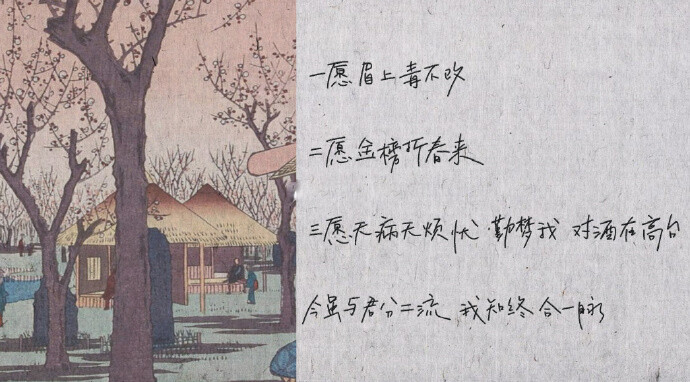 一愿眉上毒不改
二愿金榜折春来
三愿无病无烦忧 勤梦我 对酒在高台
今虽与君分二流 我知终合一脉